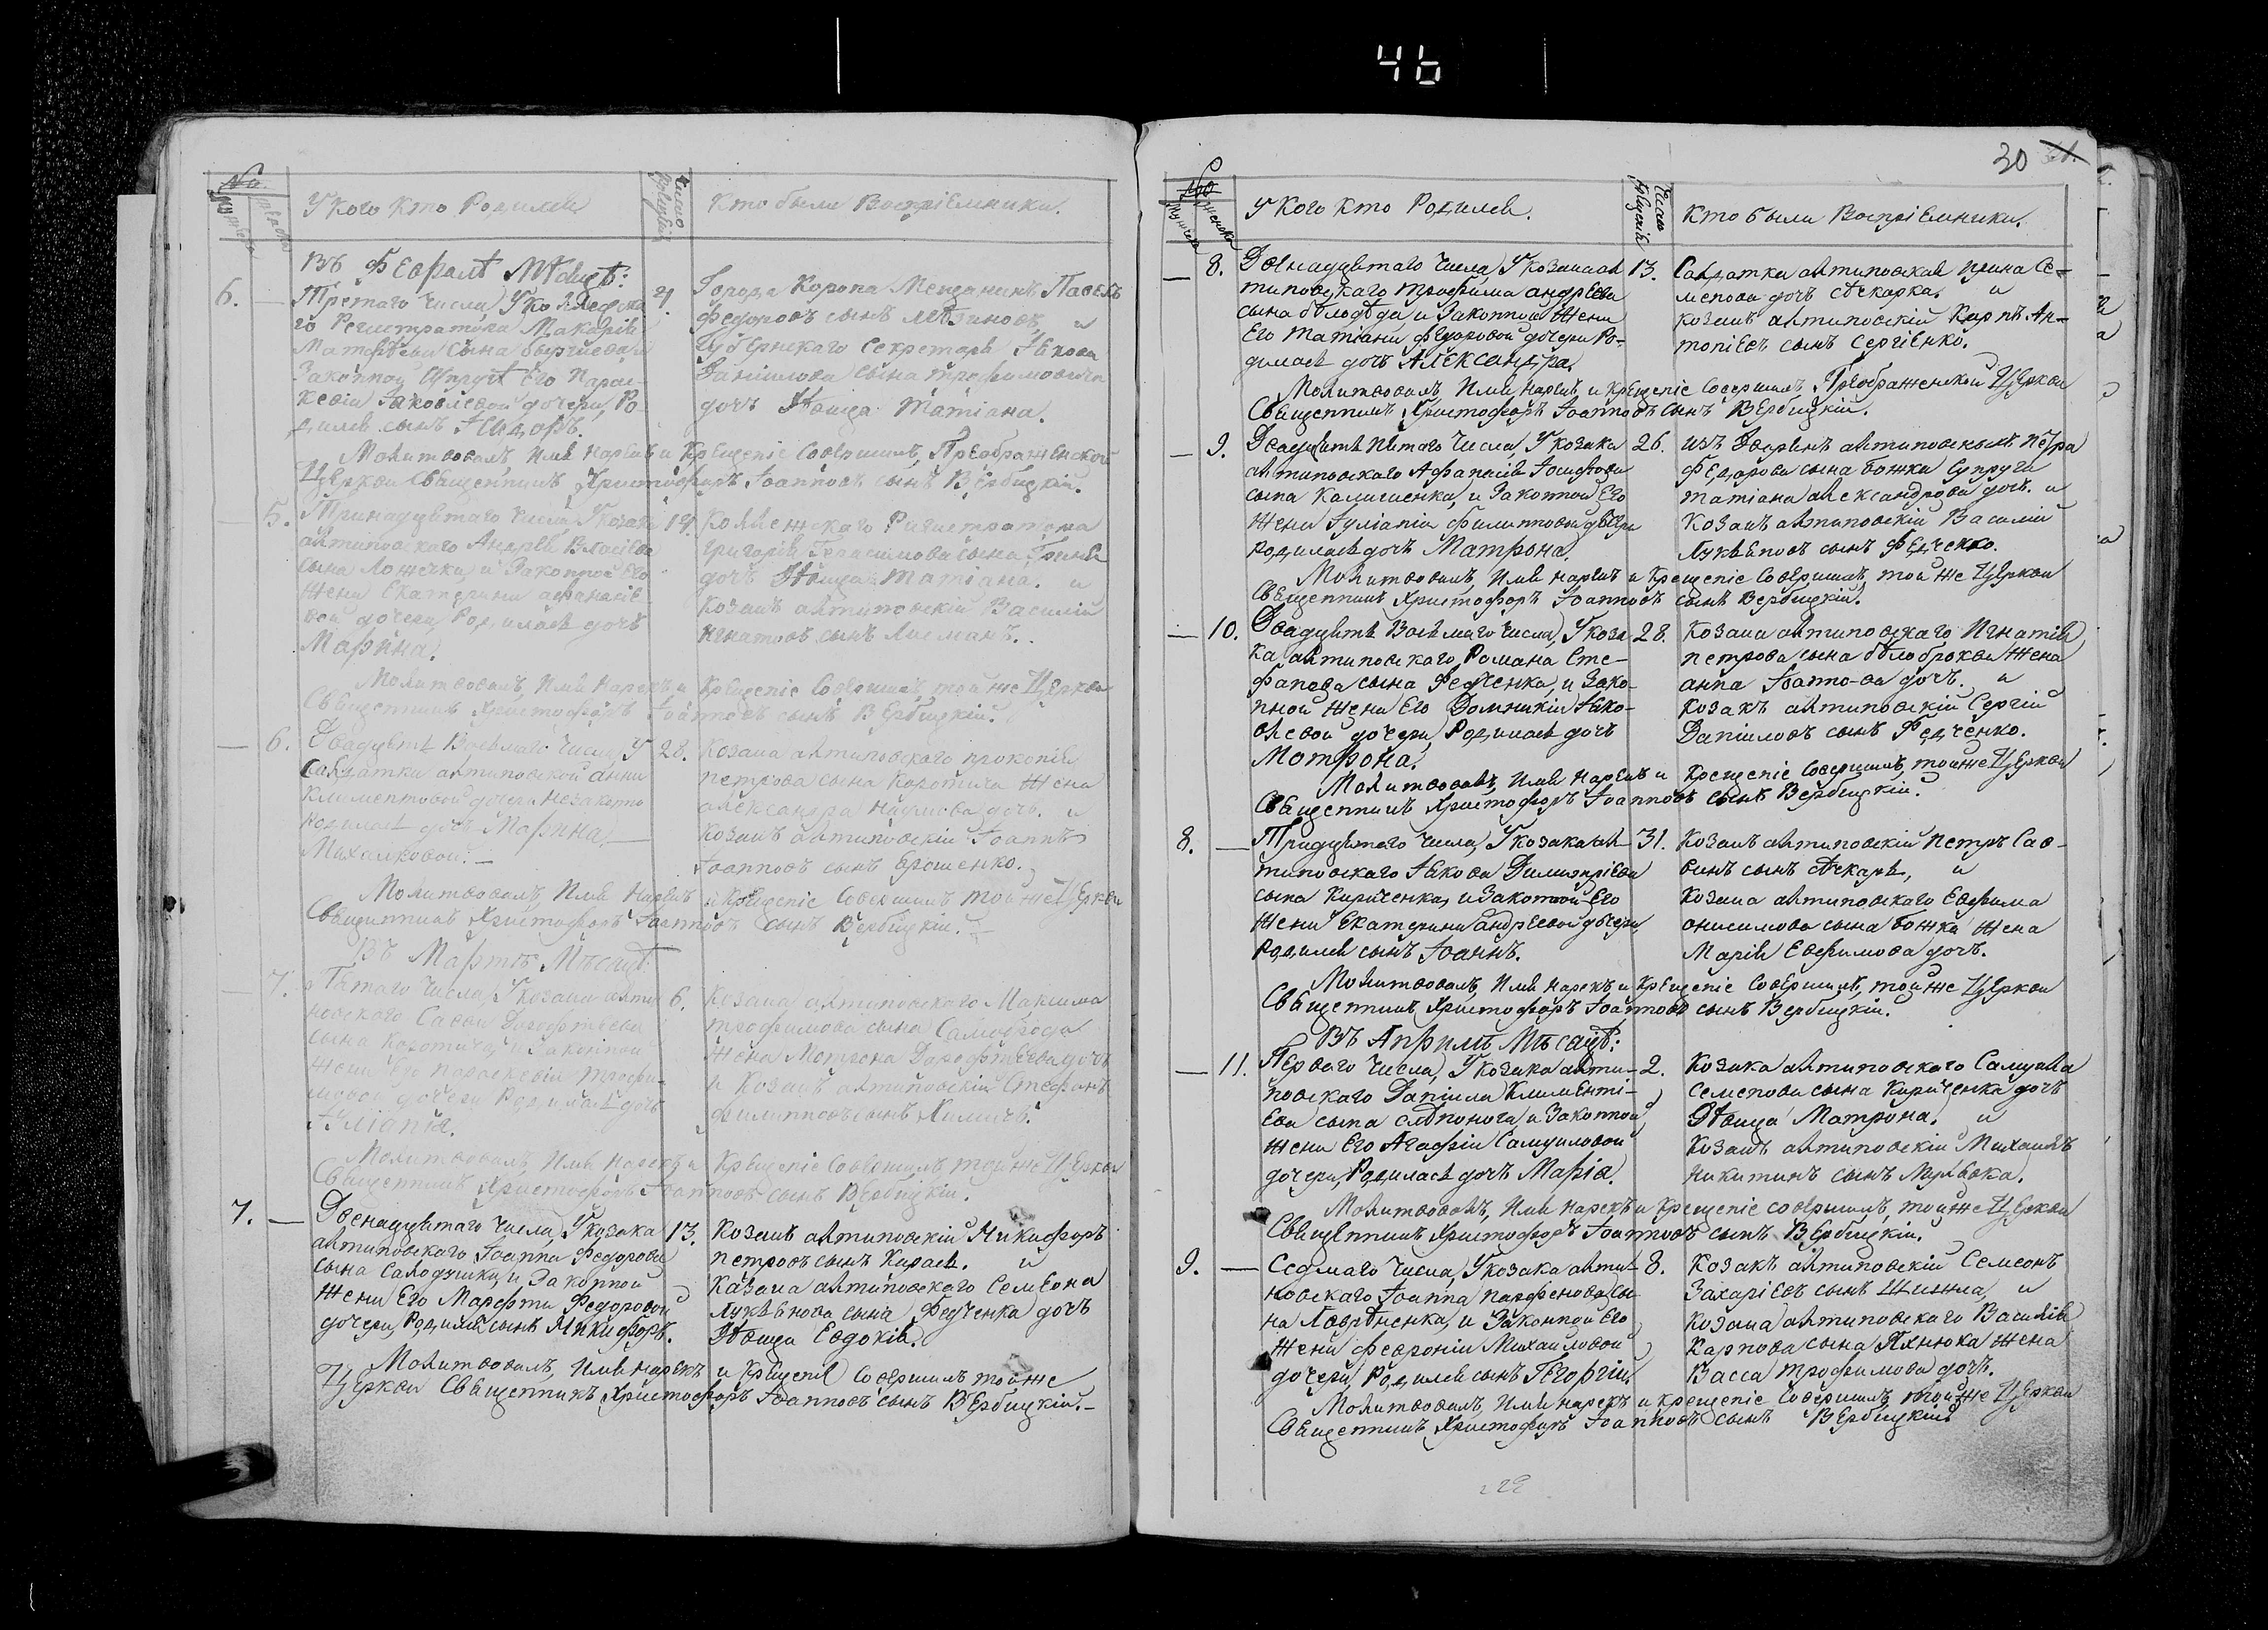 46
No.
У кого кто Родился
Число Крещенія
Кто были Воспріемники.
Въ Февралѣ Мѣсяцѣ:
6.
Третаго числа, У Коллежска-
го Регистратора Макарія
Матфѣева сына
Законной Супруги Его Парас-
кевіи Іаковлевой дочери, Ро-
дился сынъ Ісидоръ.
4.
Города Коропа Мещанинъ Павелъ
Федоровъ сынъ Мѣзиновъ, и
Губернскаго Секретаря Іакова
Даніилова сына Трофимовича
дочь Дѣвица Татіана.
Молитвовалъ, Имя Нарекъ и Крещеніе Совершилъ, Преображенской
Церкви Священникъ Христофоръ Іоанновъ сынъ Вербицкій.
5.
Тринадцятаго числа, У козака
алтиновскаго Андрея Власіева
сына Ложечки, и Законной Его
жени Екатерини афанасіе-
вой дочери, Родилась дочь
Марина.
14.
Коллежскаго Регистратора
Григорія Герасимова сына
дочь Дѣвица Татіана. и
Козакъ алтиновскій Василій
Игнатовъ сынъ Лисманъ.
Молитвовалъ, Имя Нарекъ и Крещеніе Совершилъ, той же Церкви
Священникъ Христофоръ Іоанновъ сынъ Вербицкій.
— 6.
Двадцять Восьмаго Числа, У
Салдатки алтиновской Анни
Климентовой дочери незаконно
Родилась дочь Марина. —
Михалковой. —
28.
Козака алтиновскаго Прокопія
Петрова сына Коротича Жена
александра Наумова дочь. и
Козакъ алтиновскій Іоаннъ
Іоанновъ сынъ Ерошенко.
Молитвовалъ, Имя Нарекъ и Крещеніе Совершилъ той же Церкви
Священникъ Христофоръ Іоанновъ сынъ Вербицкій. —
Въ Мартѣ Мѣсяцѣ:
— 7.
Пятаго Числа, У козака алти-
новскаго Саввы Дорофѣева
сына Коротича, и Законной
жени Его Параскевіи Трофи-
мовой дочери Родилась дочь
Іуліанія.
6.
Козака алтиновскаго Максима
Трофимова сына Самоброда
Жена Мотрона Дорофѣева дочь
и Козакъ алтиновскій Стефанъ
Филипповъ сынъ Химичъ.
Молитвовалъ, Имя Нарекъ и Крещеніе Совершилъ той же Церкви
Священникъ Христофоръ Іоанновъ сынъ Вербицкій.
7. —
Двенадцятаго числа, У козака
алтиновскаго Іоанна Федорова
сына Салодушки, и Законной
жени Его Марфти Федоровой
дочери, Родился сынъ Никифоръ.
13.
Козакъ алтиновскій Никифоръ
Петровъ сынъ Карась. и
Казака алтиновскаго Семеона
Лукьянова сына Федченка дочь
Дѣвица Евдокія.
Молитвовалъ, Имя нарекъ и Крещеніе Совершилъ той же
Церкви Священникъ Христофоръ Іоанновъ сынъ Вербицкій. —
30
No
мужеска
женска
У Кого Кто Родился.
Число Крещенія
Кто были Воспріемники.
— 8.
Двенадцятаго Числа, У козака ал-
тиновскаго Трофима Андреева
сына бѣлодѣда и Законной жени
Его Татіани Федоровой дочери Ро-
дилась дочь Александра.
13.
Салдатка алтиновская Ирина Се-
менова дочь Лѣкарка. и
козакъ алтиновскій Карпъ Ан-
тоніевъ сынъ Сергіенко.
Молитвовалъ, Имя Нарекъ и Крещеніе Совершилъ, Преображенской Церкви
Священникъ Христофоръ Іоанновъ сынъ Вербицкій.
— 9.
Двадцять пятаго Числа, У козака
алтиновскаго Афанасія Іосифова
сына Калиниченка, и Законной Его
жени Іуліаніи Филипповой дочери
родилась дочь Матрона.
26.
Изъ Дворянъ алтиновскихъ Петра
Федорова сына божка Супруга
Татіана Александрова дочь. и
Козакъ алтиновскій Василій
Лукьяновъ сынъ Федченко.
Молитвовалъ, Имя нарекъ и Крещеніе Совершилъ, той же Церкви
Священникъ Христофоръ Іоанновъ сынъ Вербицкій.
— 10.
Двадцять Восьмаго Числа, У коза-
ка алтиновскаго Романа Сте-
фанова сына Федченка, и Зако-
нной жени Его Домникіи Іако-
влевой дочери, Родилась дочь
Мотрона.
28.
Козака алтиновскаго Игнатія
Петрова сына бѣлоброква Жена
анна Іоанно-ва дочь. и
козакъ алтиновскій Сергій
Даніиловъ сынъ Федченко.
Молитвовалъ, Имя нарекъ и Крещеніе Совершилъ, той же Церкви
Священникъ Христофоръ Іоанновъ сынъ Вербицкій.
8. —
Тридцятаго Числа, У козака ал-
тиновскаго Іакова Димитріева
сына Кириченка, и Законной Его
Жени Екатерини андреевой дочери
Родился сынъ Іоаннъ.
31.
Козакъ алтиновскій Петръ Сав-
винъ сынъ Лѣкарь, и
Козака алтиновскаго Евфима
онисимова сына божка Жена
Марія Евфимова дочь.
Молитвовалъ, Имя Нарекъ и Крещеніе Совершилъ, той же Церкви
Священникъ Христофоръ Іоанновъ сынъ Вербицкій.
Въ Априлѣ Мѣсяцѣ:
— 11.
Перваго Числа, У козака алти-
новскаго Даніила Клименті-
ева сына слѣпонога, и Законной
жени Его Агафіи Самуиловой
дочери, Родилась дочь Марія.
2.
Козака алтиновскаго Самуила
Семенова сына Кириченка дочь
Дѣвица Матрона. и
Козакъ алтиновскій Михаилъ
Никитинъ сынъ Мулявка.
Молитвовалъ, Имя Нарекъ и Крещеніе совершилъ, той же Церкви
Священникъ Христофоръ Іоанновъ сынъ Вербицкій.
9. —
Седмаго Числа, У козака алти-
новскаго Іоанна Парфенова сы-
на Лаврѣненка, и Законной Его
Жени Февроніи Михаиловой
дочери, Родился сынъ Гіоргій.
8.
Козакъ алтиновскій Семеонъ
Захаріевъ сынъ и
Козака алтиновскаго Василія
Карпова сына Яхнюка жена
Васса Трофимова дочь.
Молитвовалъ, Имя нарекъ и крещеніе Совершилъ, той же Церкви
Священникъ Христофоръ Іоанновъ сынъ Вербицкій.